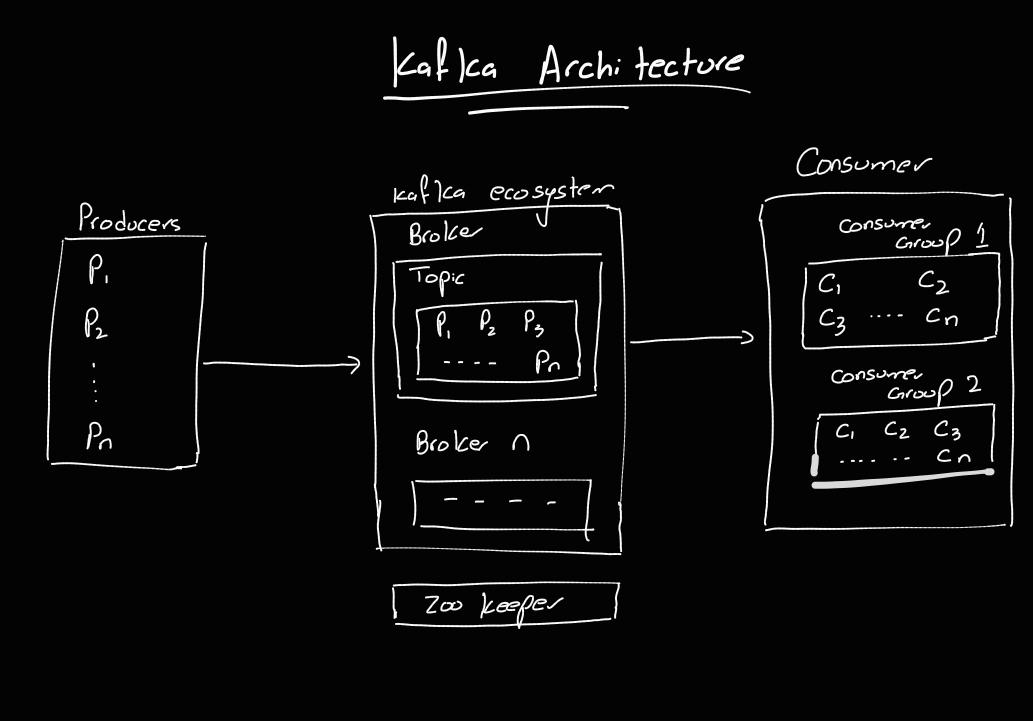 Kafka Architecture
Producers
P1
P2
Pn
kafka ecosystem
Broker
Topic
P1 P2 P3
---- Pn
Broker n
- - - -
Zoo keeper
Consumer
Consumer
Group 1
C1 C2
C3 .... Cn
Consumer
Group 2
C1 C2 C3
.... .. Cn